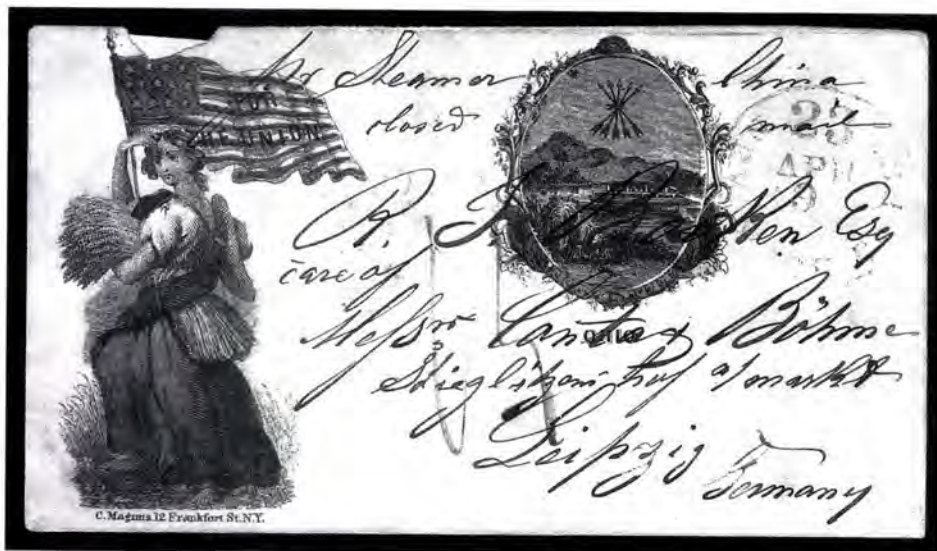 FOR
THE UNION
pr Steamer China
closed mail
23
APR
R. J. Esq
care of
Messrs & Böhme
OHIO
Stieglitzens hof a/markt
Leipzig
Germany
C. Magnus 12 Frankfort St. N.Y.